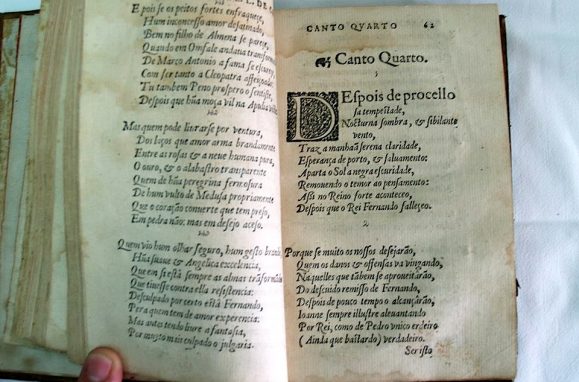 E pois se os peitos fortes enfraquece,
Hum inconcesso amor desatinado,
Bem no filho de Almena se parece,
Quando em Omfale andaua transforma
De Marco Antonio a fama se escurece,
Com ser tanto a Cleopatra affeiçoado:
Tu tambem Peno prospero o sentiste,
Despois que hũa moça vil na Apulia
Mas quem pode liurarse por ventura,
Dos laços que amor arma brandamente
Entre as rosas & a neue humana pura,
O ouro, & o alabastro transparente
Quem de hũa peregrina fermosura
De hum vulto de Medusa propriamente
Que o coração conuerte que tem preso,
Em pedra não: mas em desejo aceso.
Quem vio hum olhar seguro, hum gesto brando
Hũa suaue & Angelica excelencia,
Que em si està sempre as almas trãsformã
Que tiuesse contra ella resistencia:
Desculpado por certo està Fernando,
Pera quem tem de amor experencia:
Mas antes tendo liure a fantasia,
Por muyto mais culpado o julgaria.
CANTO QVARTO 62
Canto Quarto.
1
DEspois de procello
sa tempestade,
Nocturna sombra, & sibilante
vento,
Traz a manhaã serena claridade,
Esperança de porto, & saluamento:
Aparta o Sol a negra escuridade,
Remouendo o temor ao pensamento:
Assi no Reino forte aconteceo,
Despois que o Rei Fernando falleceo.
2
Porque se muito os nossos desejarão,
Quem os danos & offensas va vingando,
Naquelles que tãbem se aproueitarão,
Do descuido remisso de Fernando,
Despois de pouco tempo o alcançarão,
Ioanne sempre illustre aleuantando
Por Rei, como de Pedro vnico erdeiro
(Ainda que bastardo) verdadeiro.
Ser isto